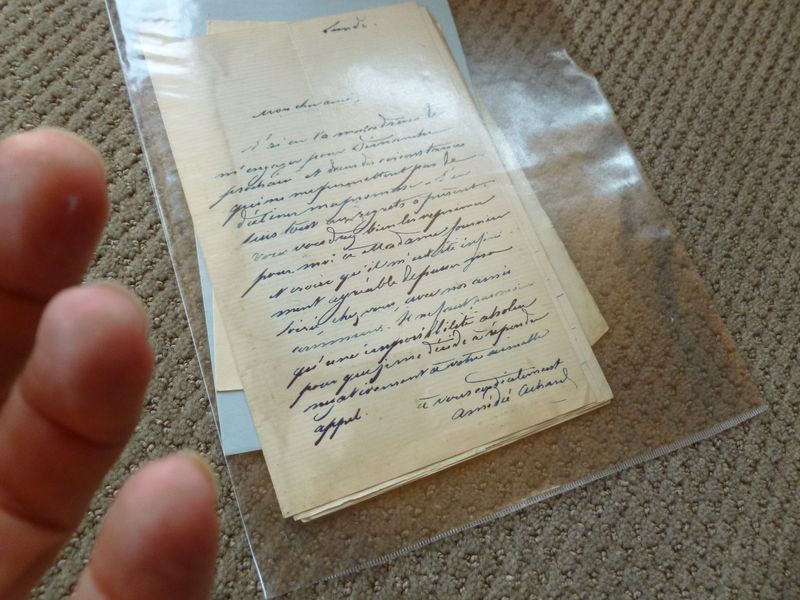 Lundi.
Mon cher ami,
J'ai eu la maladresse de
m'engager pour Dimanche
prochain et des circonstances
qui ne me permettent pas de
ma promesse. J'en
suis tout aux regrets à présent.
vous voudrez bien les exprimer
pour moi à Madame Fournier
et croire qu'il m'eut été infini-
ment agréable de passer
soirée chez vous, avec nos amis
communs. Il ne faut pas moins
qu'une impossibilité absolue
pour que je me décide à répondre
négativement à votre aimable
appel.
à vous cordialement
Amédée Achard